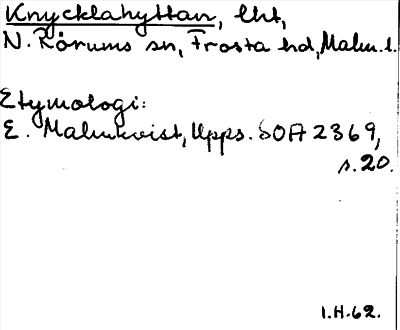 Knycklahyttan, lht,
N. Rörums sn, Frosta hd, Malm. l.
Etymologi:
E. Malmkvist, Upps. SOA 2369,
s. 20.
1.H-62.